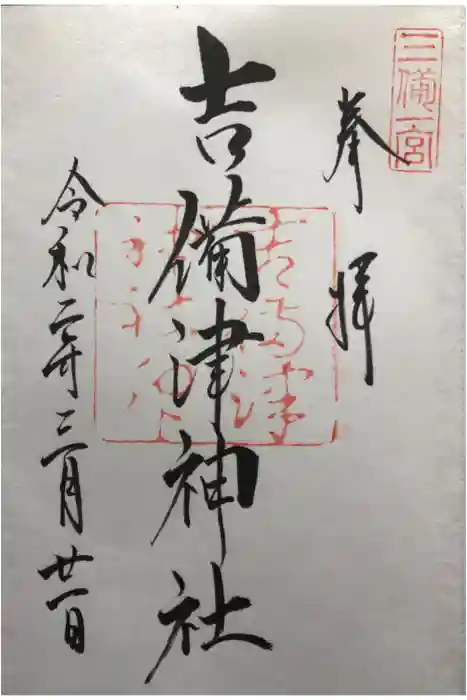 三備一宮
奉拝
吉備津神社
令和二年三月廿一日